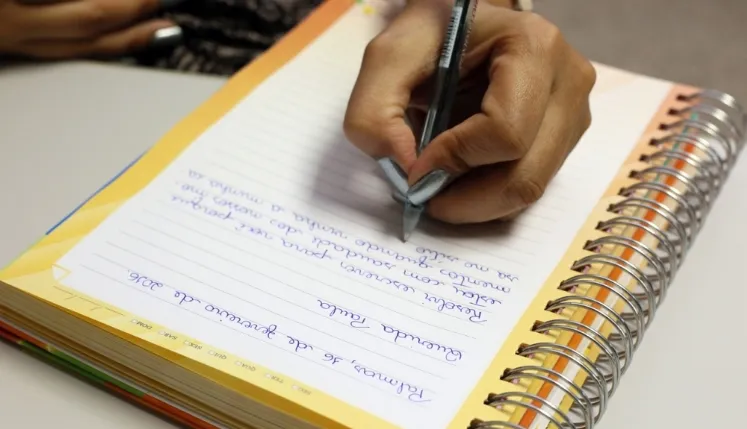 SEG TER QUA QUI SEX SAB DOM
Palmas, 16 de fevereiro de 2016
Querida Paula
Resolvi escrever para você porque
estou com saudade dos nossos mo-
mentos quando vinha a minha ca
sa no